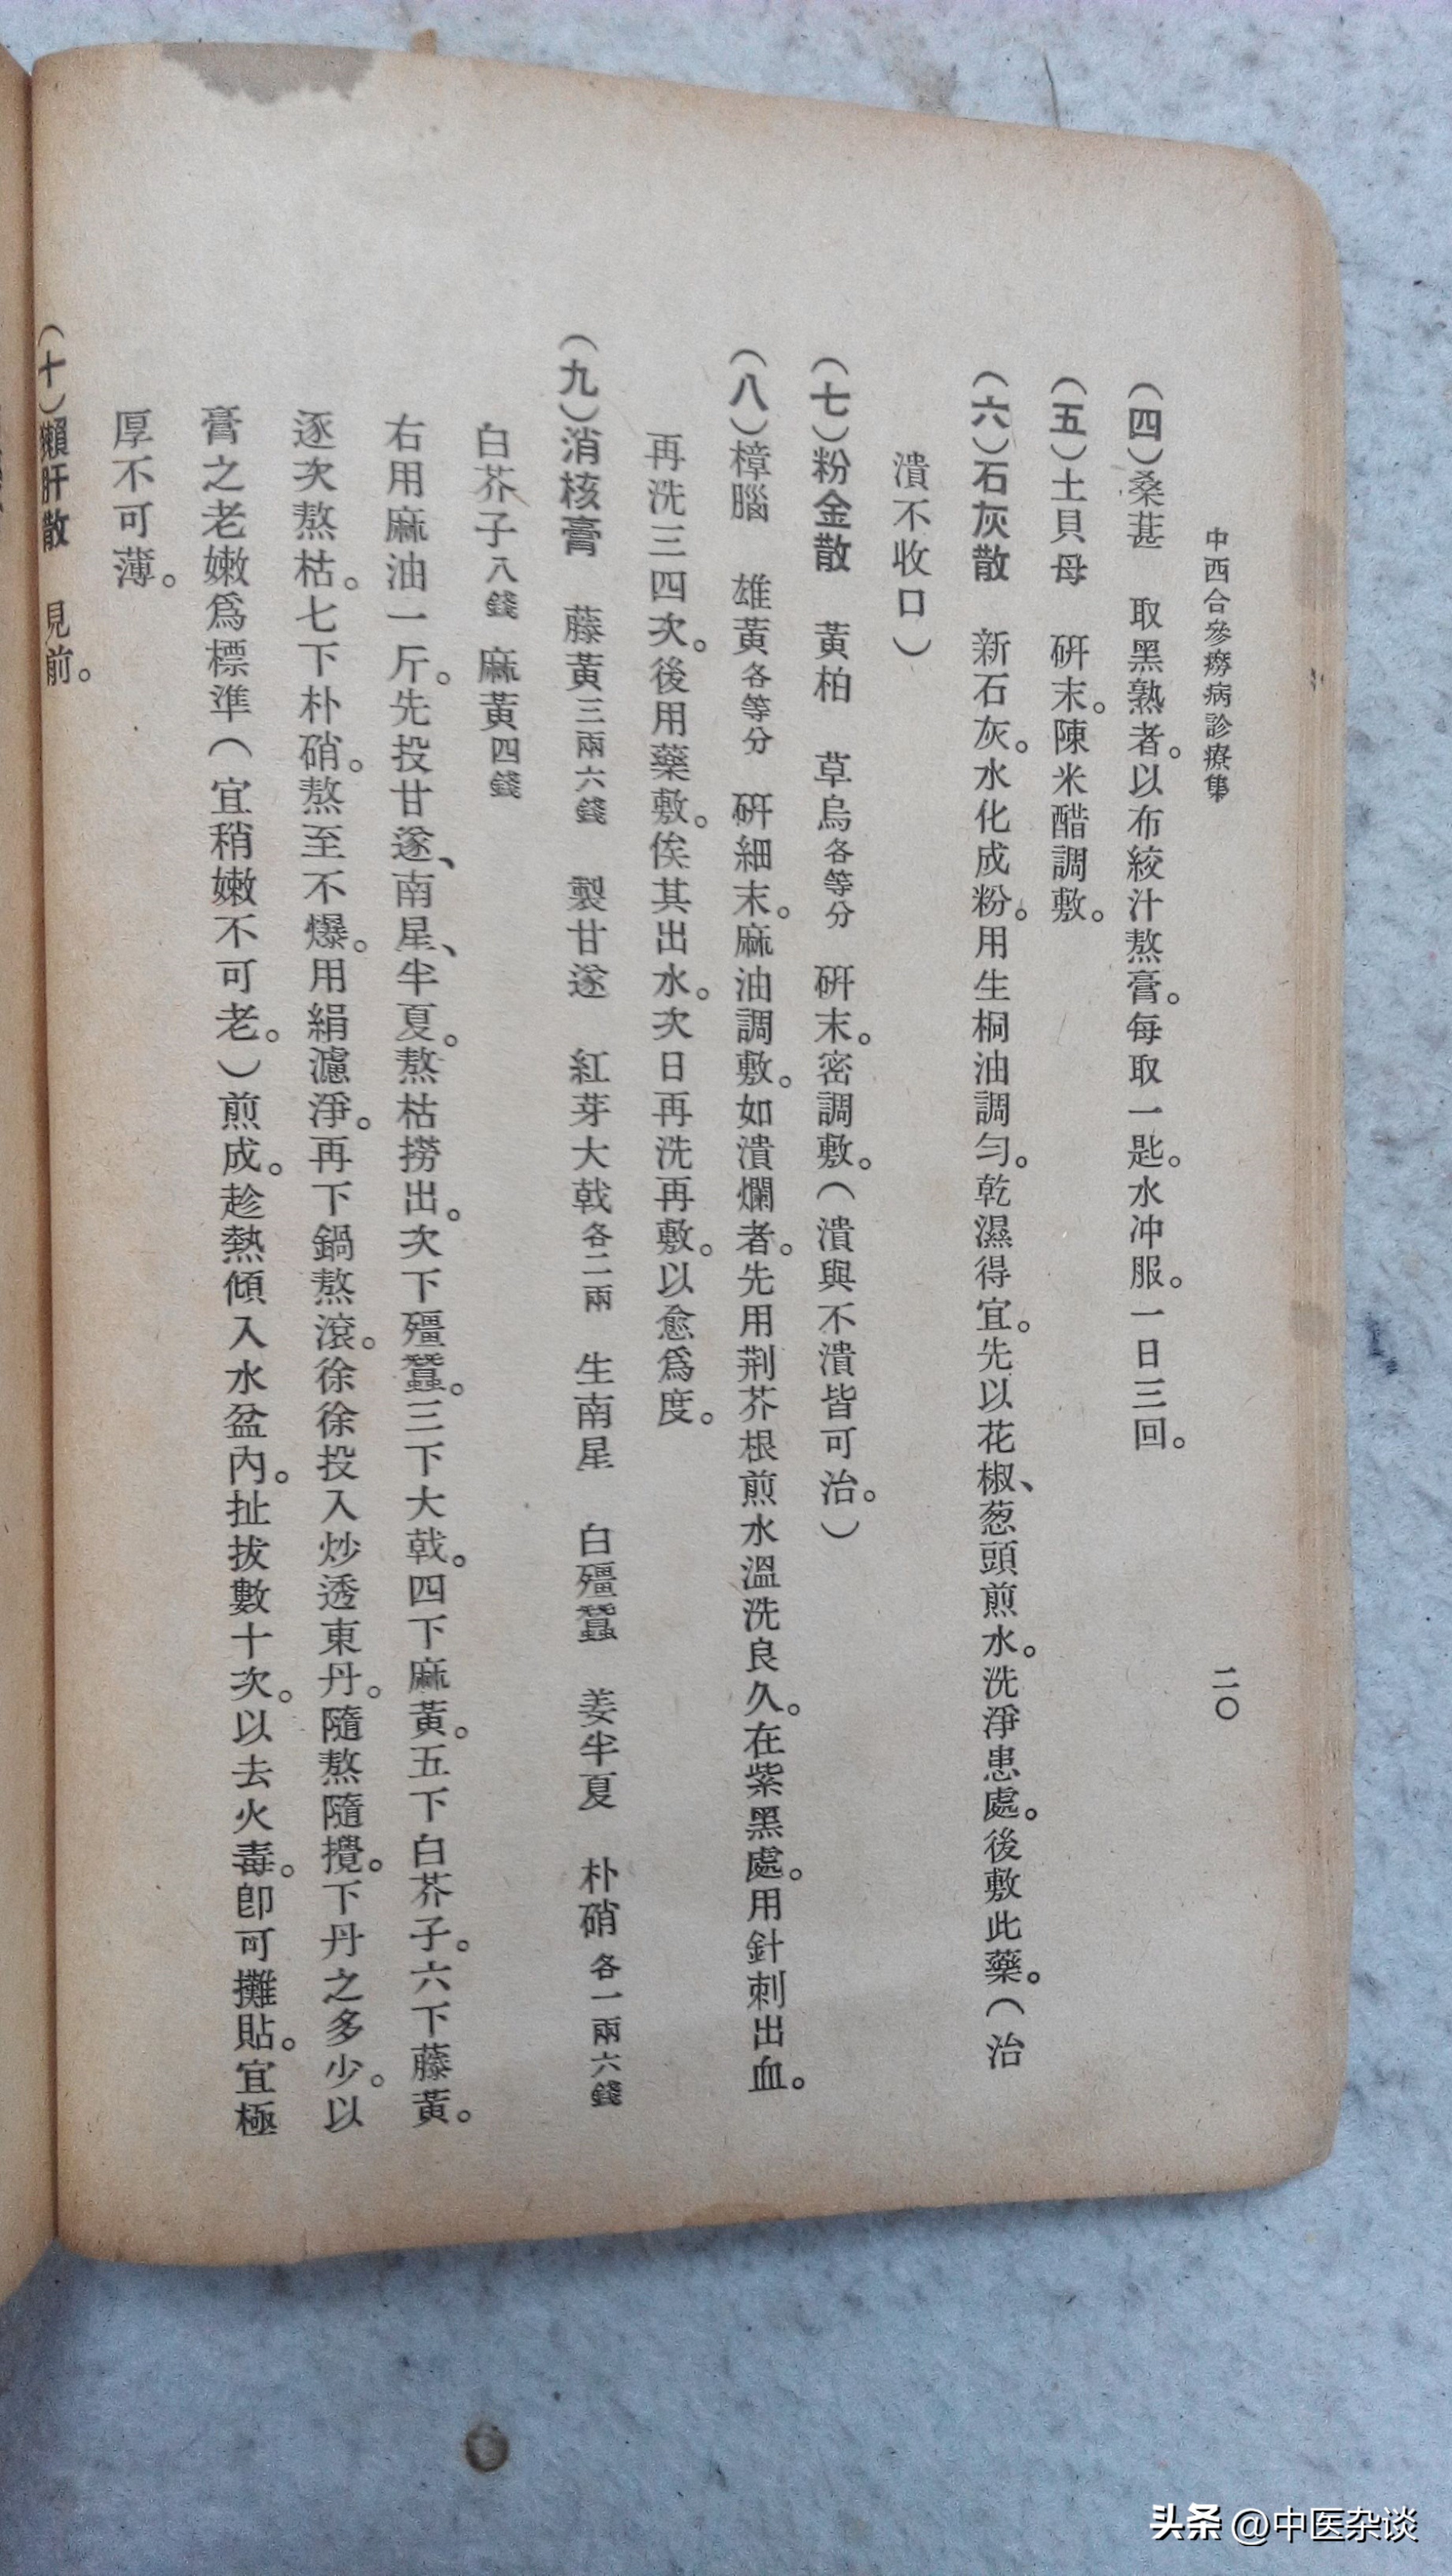 中西合參癆病診療集
二〇
(四)桑葚　取黑熟者。以布絞汁熬膏。每取一匙。水冲服。一日三回。
(五)土貝母　研末。陳米醋調敷。
(六)石灰散　新石灰。水化成粉。用生桐油調勻。乾濕得宜。先以花椒、葱頭煎水。洗淨患處。後敷此藥。(治
潰不收口)
(七)粉金散　黃柏　草烏各等分　研末。密調敷。(潰與不潰皆可治。)
(八)樟腦　雄黃各等分　研細末。麻油調敷。如潰爛者。先用荆芥根煎水溫洗良久。在紫黑處。用針刺出血。
再洗三四次。後用藥敷。俟其出水。次日再洗再敷。以愈爲度。
(九)消核膏　藤黃三兩六錢　製甘遂　紅芽大戟各二兩　生南星　白殭蠶　姜半夏　朴硝各一兩六錢
白芥子八錢　麻黃四錢
右用麻油一斤。先投甘遂、南星、半夏。熬枯撈出。次下殭蠶。三下大戟。四下麻黃。五下白芥子。六下藤黃。
逐次熬枯。七下朴硝。熬至不爆。用絹濾淨。再下鍋熬滾。徐徐投入炒透東丹。隨熬隨攪。下丹之多少。以
膏之老嫩爲標準(宜稍嫩不可老。)煎成。趁熱傾入水盆內。扯拔數十次。以去火毒。卽可攤貼。宜極
厚不可薄。
(十)獺肝散　見前。
头条 @中医杂谈